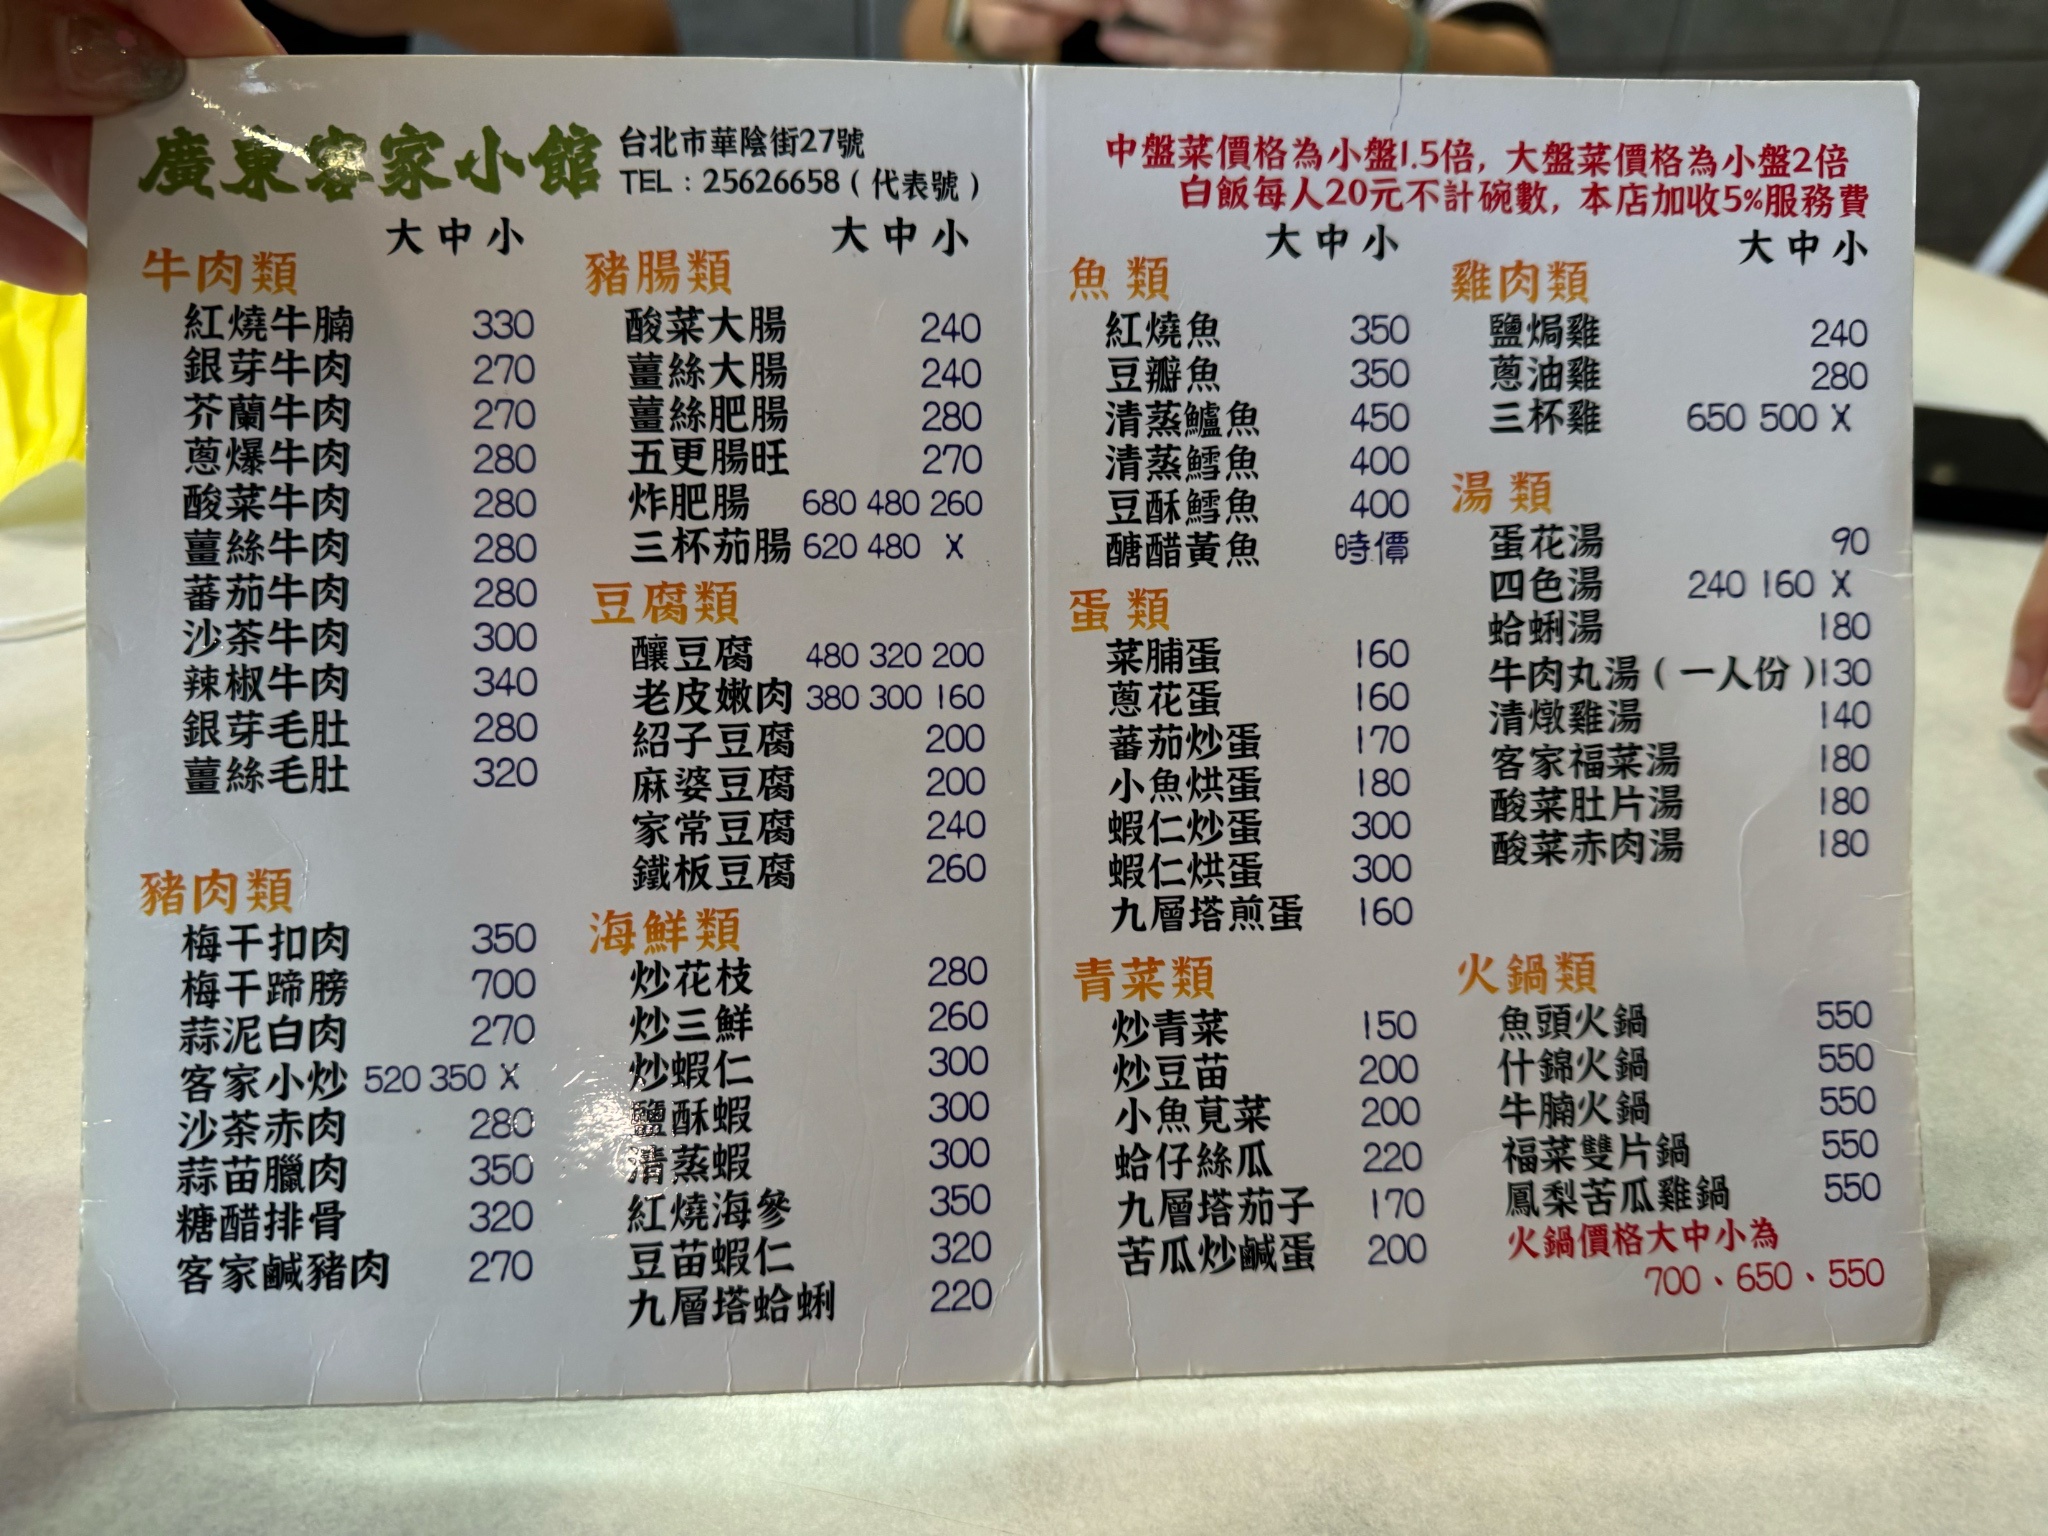 廣東客家小館
台北市華陰街27號
TEL：25626658（代表號）
大 中 小
牛肉類
紅燒牛腩 330
銀芽牛肉 270
芥蘭牛肉 270
蔥爆牛肉 280
酸菜牛肉 280
薑絲牛肉 280
蕃茄牛肉 280
沙茶牛肉 300
辣椒牛肉 340
銀芽毛肚 280
薑絲毛肚 320
豬肉類
梅干扣肉 350
梅干蹄膀 700
蒜泥白肉 270
客家小炒 520 350 X
沙茶赤肉 280
蒜苗臘肉 350
糖醋排骨 320
客家鹹豬肉 270
大 中 小
豬腸類
酸菜大腸 240
薑絲大腸 240
薑絲肥腸 280
五更腸旺 270
炸肥腸 680 480 260
三杯茄腸 620 480 X
豆腐類
釀豆腐 480 320 200
老皮嫩肉 380 300 160
紹子豆腐 200
麻婆豆腐 200
家常豆腐 240
鐵板豆腐 260
海鮮類
炒花枝 280
炒三鮮 260
炒蝦仁 300
鹽酥蝦 300
清蒸蝦 300
紅燒海參 350
豆苗蝦仁 320
九層塔蛤蜊 220
中盤菜價格為小盤1.5倍, 大盤菜價格為小盤2倍
白飯每人20元不計碗數, 本店加收5%服務費
大 中 小
魚類
紅燒魚 350
豆瓣魚 350
清蒸鱸魚 450
清蒸鱈魚 400
豆酥鱈魚 400
醣醋黃魚 時價
蛋類
菜脯蛋 160
蔥花蛋 160
蕃茄炒蛋 170
小魚烘蛋 180
蝦仁炒蛋 300
蝦仁烘蛋 300
九層塔煎蛋 160
青菜類
炒青菜 150
炒豆苗 200
小魚莧菜 200
蛤仔絲瓜 220
九層塔茄子 170
苦瓜炒鹹蛋 200
大 中 小
雞肉類
鹽焗雞 240
蔥油雞 280
三杯雞 650 500 X
湯類
蛋花湯 90
四色湯 240 160 X
蛤蜊湯 180
牛肉丸湯（一人份）130
清燉雞湯 140
客家福菜湯 180
酸菜肚片湯 180
酸菜赤肉湯 180
火鍋類
魚頭火鍋 550
什錦火鍋 550
牛腩火鍋 550
福菜雙片鍋 550
鳳梨苦瓜雞鍋 550
火鍋價格大中小為
700、650、550